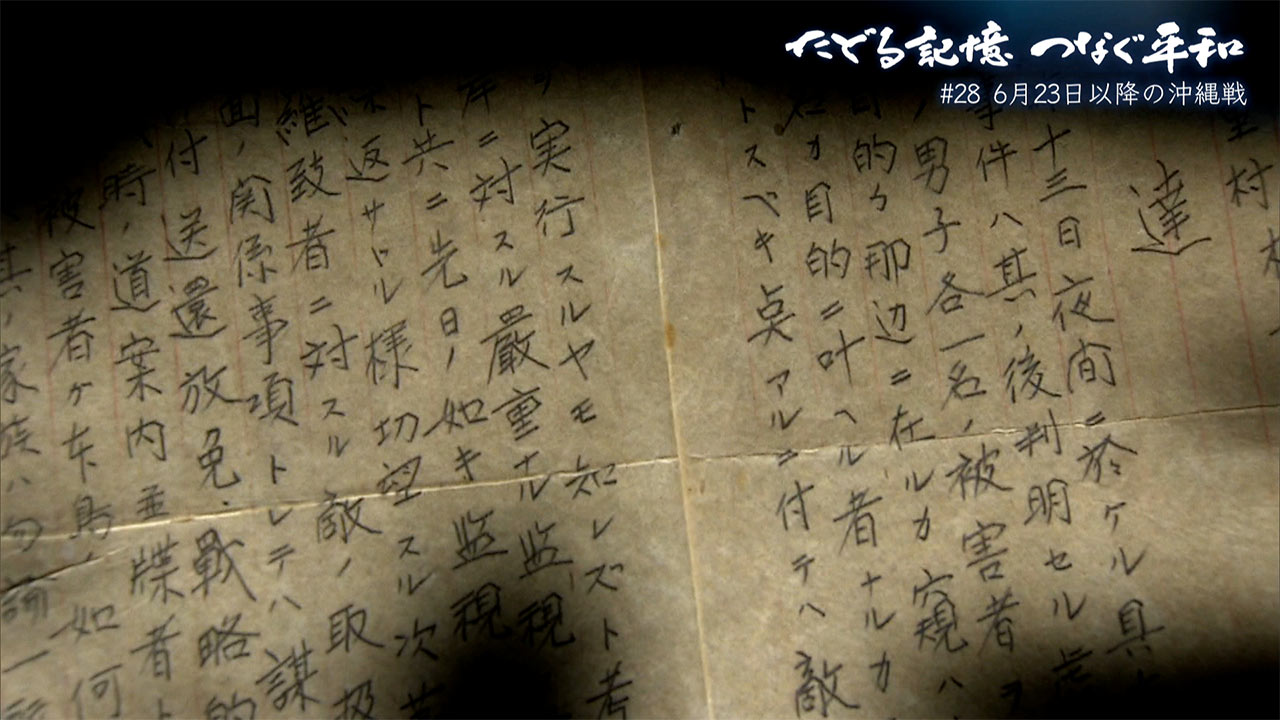 たどる記憶 つなぐ平和
#28 6月23日以降の沖縄戦
村
達
十三日夜間ニ於ケル具
事件ハ其ノ後判明セル
ノ男子各一名ノ被害者ヲ
目的ガ那辺ニ在ルカ窺ハ
カ目的ニ叶ヘル者ナルカ
トスベキ点アルニ付テハ敵
実行スルヤモ知レズト考
岸ニ対スル厳重ナル監視
ト共ニ先日ノ如キ監視
返サドル様切望スル次
維致者ニ対スル敵ノ取扱
面ノ関係事項トシテハ謀
付送還放免戦略的
時ノ道案内並牒者ト
被害者ケ本島ノ如何
其ノ家族ハ勿論一